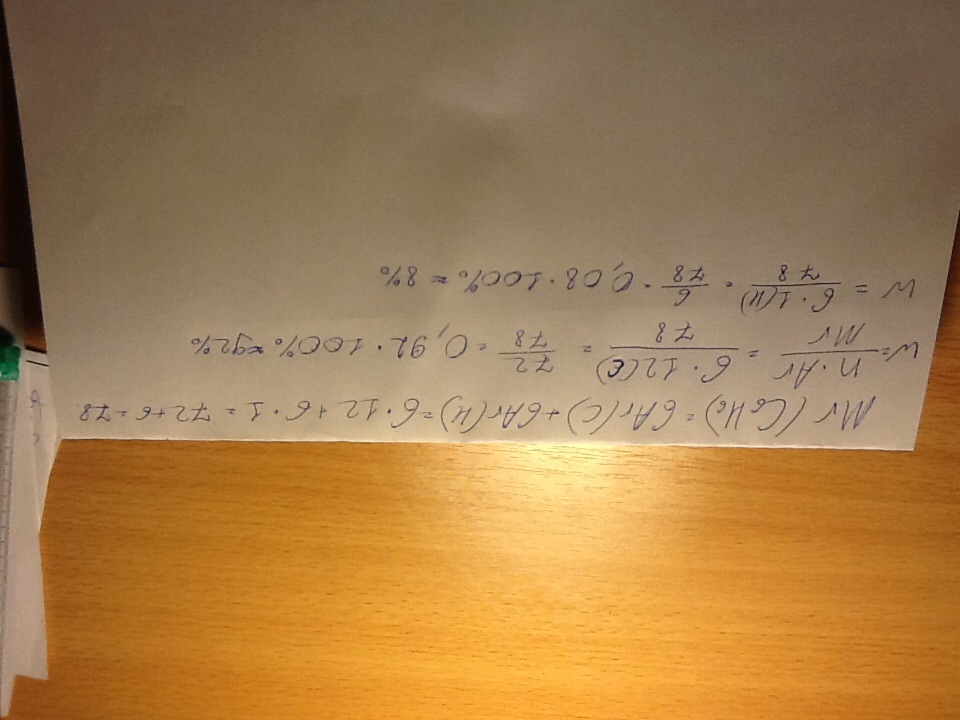 Mr (C6H6) = 6Ar(C) + 6Ar(H) = 6·12 + 6·1 = 72+6 = 78
w = n·Ar / Mr = 6·12(C) / 78 = 72 / 78 = 0,92·100% ≈ 92%
w = 6·1(H) / 78 = 6 / 78 = 0,08·100% ≈ 8%